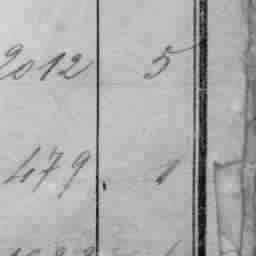 2012 5
479. 1